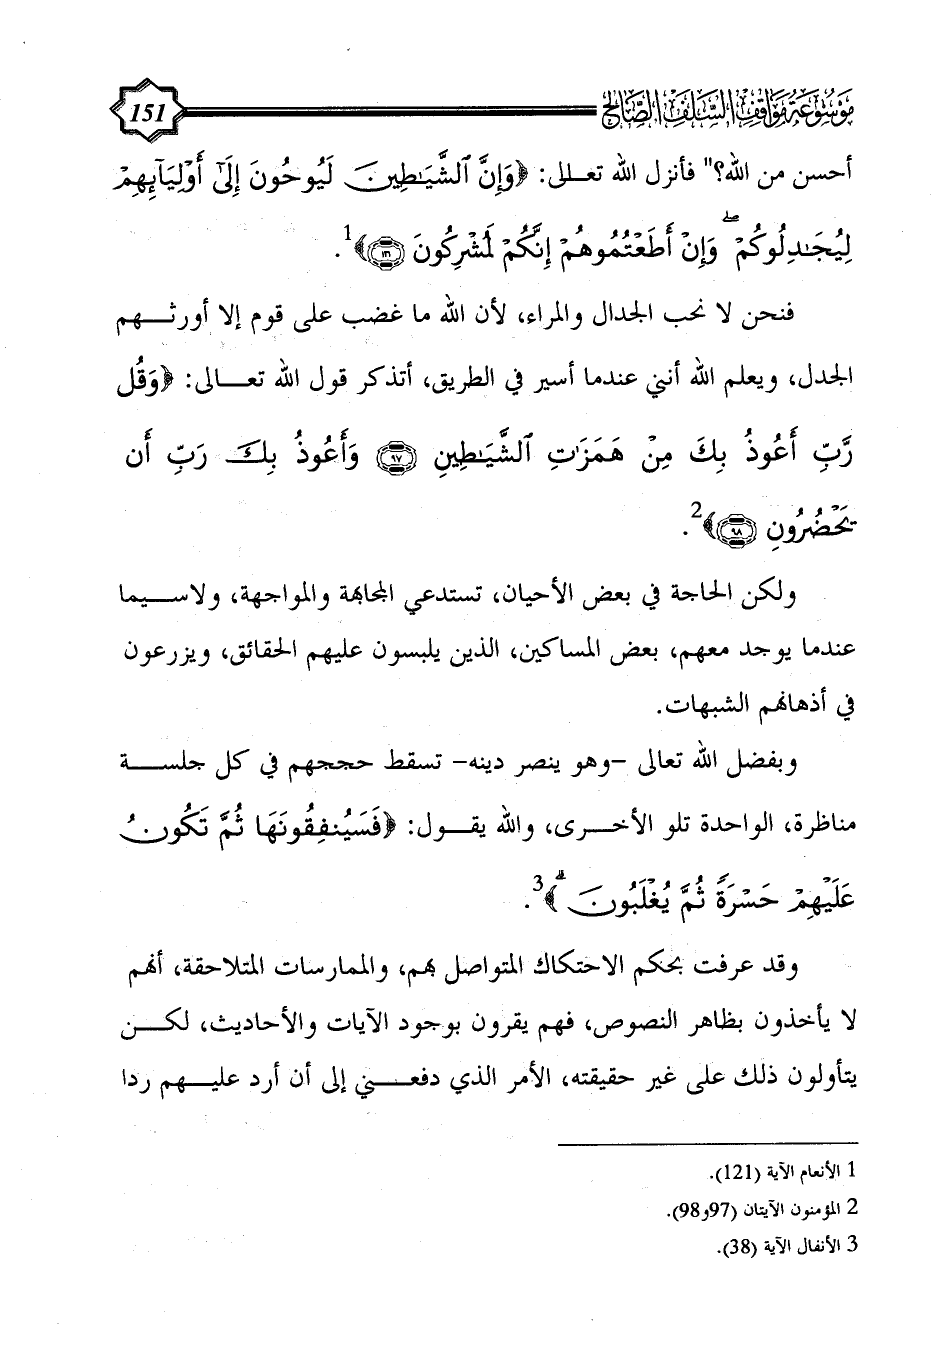 موسوعة مواقف السلف الصالح
151
أحسن من الله؟" فأنزل الله تعــالى: ﴿وَإِنَّ ٱلشَّيَـٰطِينَ لَيُوحُونَ إِلَىٰٓ أَوۡلِيَآئِهِمۡ
لِيُجَـٰدِلُوكُمۡۖ وَإِنۡ أَطَعۡتُمُوهُمۡ إِنَّكُمۡ لَمُشۡرِكُونَ ١٢١﴾1.
فنحن لا نحب الجدال والمراء، لأن الله ما غضب على قوم إلا أورثـــهم
الجدل، ويعلم الله أنني عندما أسير في الطريق، أتذكر قول الله تعـــالى: ﴿وَقُل
رَّبِّ أَعُوذُ بِكَ مِنۡ هَمَزَٰتِ ٱلشَّيَـٰطِينِ ٩٧ وَأَعُوذُ بِكَ رَبِّ أَن
يَحۡضُرُونِ ٩٨﴾2.
ولكن الحاجة في بعض الأحيان، تستدعي المجابهة والمواجهة، ولاســـيما
عندما يوجد معهم، بعض المساكين، الذين يلبسون عليهم الحقائق، ويزرعون
في أذهانهم الشبهات.
وبفضل الله تعالى –وهو ينصر دينه– تسقط حججهم في كل جلســـة
مناظرة، الواحدة تلو الأخـــرى، والله يقـــول: ﴿فَسَيُنفِقُونَهَا ثُمَّ تَكُونُ
عَلَيۡهِمۡ حَسۡرَةٗ ثُمَّ يُغۡلَبُونَۗ﴾3.
وقد عرفت بحكم الاحتكاك المتواصل بهم، والممارسات المتلاحقة، أنهم
لا يأخذون بظاهر النصوص، فهم يقرون بوجود الآيات والأحاديث، لكـــن
يتأولون ذلك على غير حقيقته، الأمر الذي دفعـــني إلى أن أرد عليـــهم ردا
1 الأنعام الآية (121).
2 المؤمنون الآيتان (97و98).
3 الأنفال الآية (38).